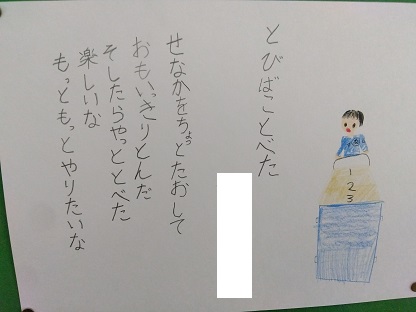 とびばことべた
せなかをちょっとたおして
おもいっきりとんだ
そしたらやっととべた
楽しいな
もっともっとやりたいな
1
2
3